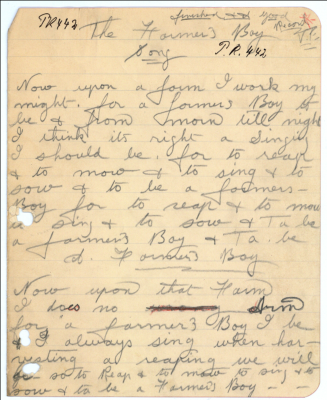 TR442 finished & & good
The Farmer's Boy Record
Song T.R. 442 T.R.
Now upon a farm I work my
might. for a farmer's Boy I
be & from morn till night
I think its right a Singing
I should be. for to reap
& to mow & to sing & to
sow & to be a farmers-
Boy for to reap & to mow
& sing & to sow & Ta be
a farmer's Boy & Ta. be
a. Farmer's Boy
Now upon that Farm
I does no harm
for a farmer's Boy I be
& I always sing when har-
vesting a reaping we will
so to Reap & to mow to sing & to
sow & ta be a Farmer's Boy - -